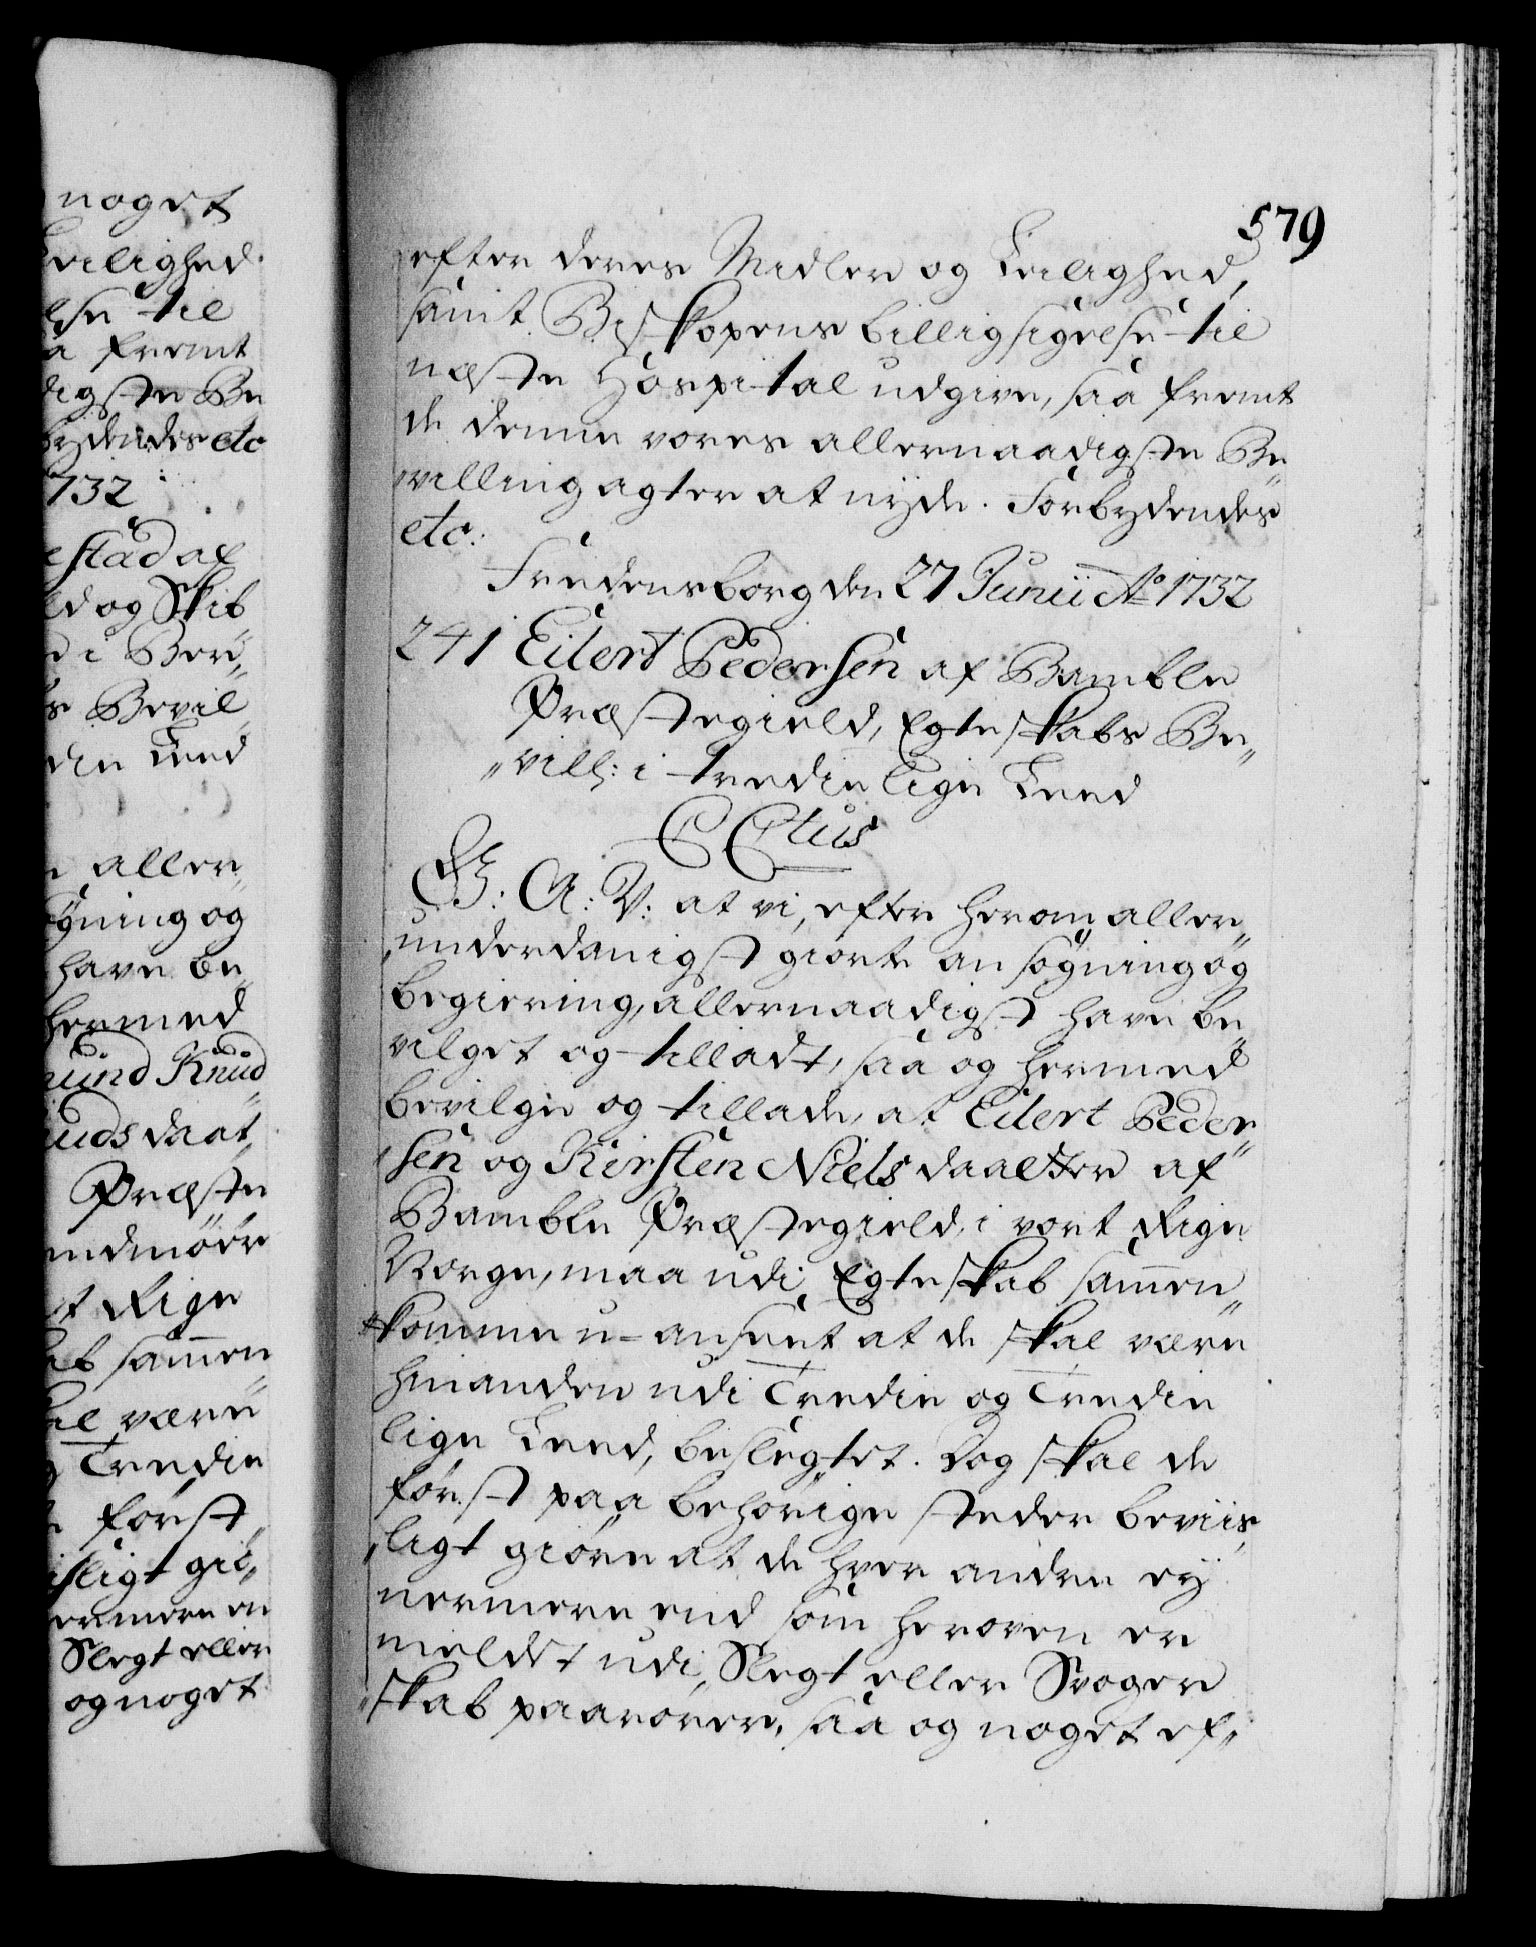 noget
eilighed
lse til
a fremt
digste Be
bydendes etc
1732
estad af
ld og Skib
d i Ber„
s Bevil
die Leed
n aller„
øgning og
have be„
hermed
mund Knud„
nuds daat„
Præste
ndmøer
rt Rige
ab sammen„
al være
g Tredie
e først
isligt giø„
ermere en
Slegt eller
og noget
579
efter deres Midler og Leilighed,
samt Biskopens billig sigelse til
næste Hospital udgive, saa fremt
de denne vores allernaadigste Be„
villing agter at nyde. Forbydendes
etc:
Fredensborg den 27 Junii Ao 1732
241 Eilert Pedersen af Bamble
Præstegield, Egteskabs Be„
„vill: i tredie lige Leed
C Ctus
G: A: V: at vi, efter herom aller„
„underdanigst giorte ansøgning og
begiering, allernaadigst have be„
vilget og tilladt, saa og hermed
bevilge og tillade, at Eilert Peder„
„sen og Kirsten Niels daatter af
Bamble Præstegield, i vort Rige
Norge, maa udi Egteskab sammen„
„komme u-anseet at de skal være
hinanden udi Tredie og Tredie
lige Leed, beslegtet. Dog skal de
først paa behørige steder beviis„
„ligt giøre at de hver andre ey
nermere end som heroven er
meldt udi Slegt eller Svoger
„skab paarører, saa og noget ef„